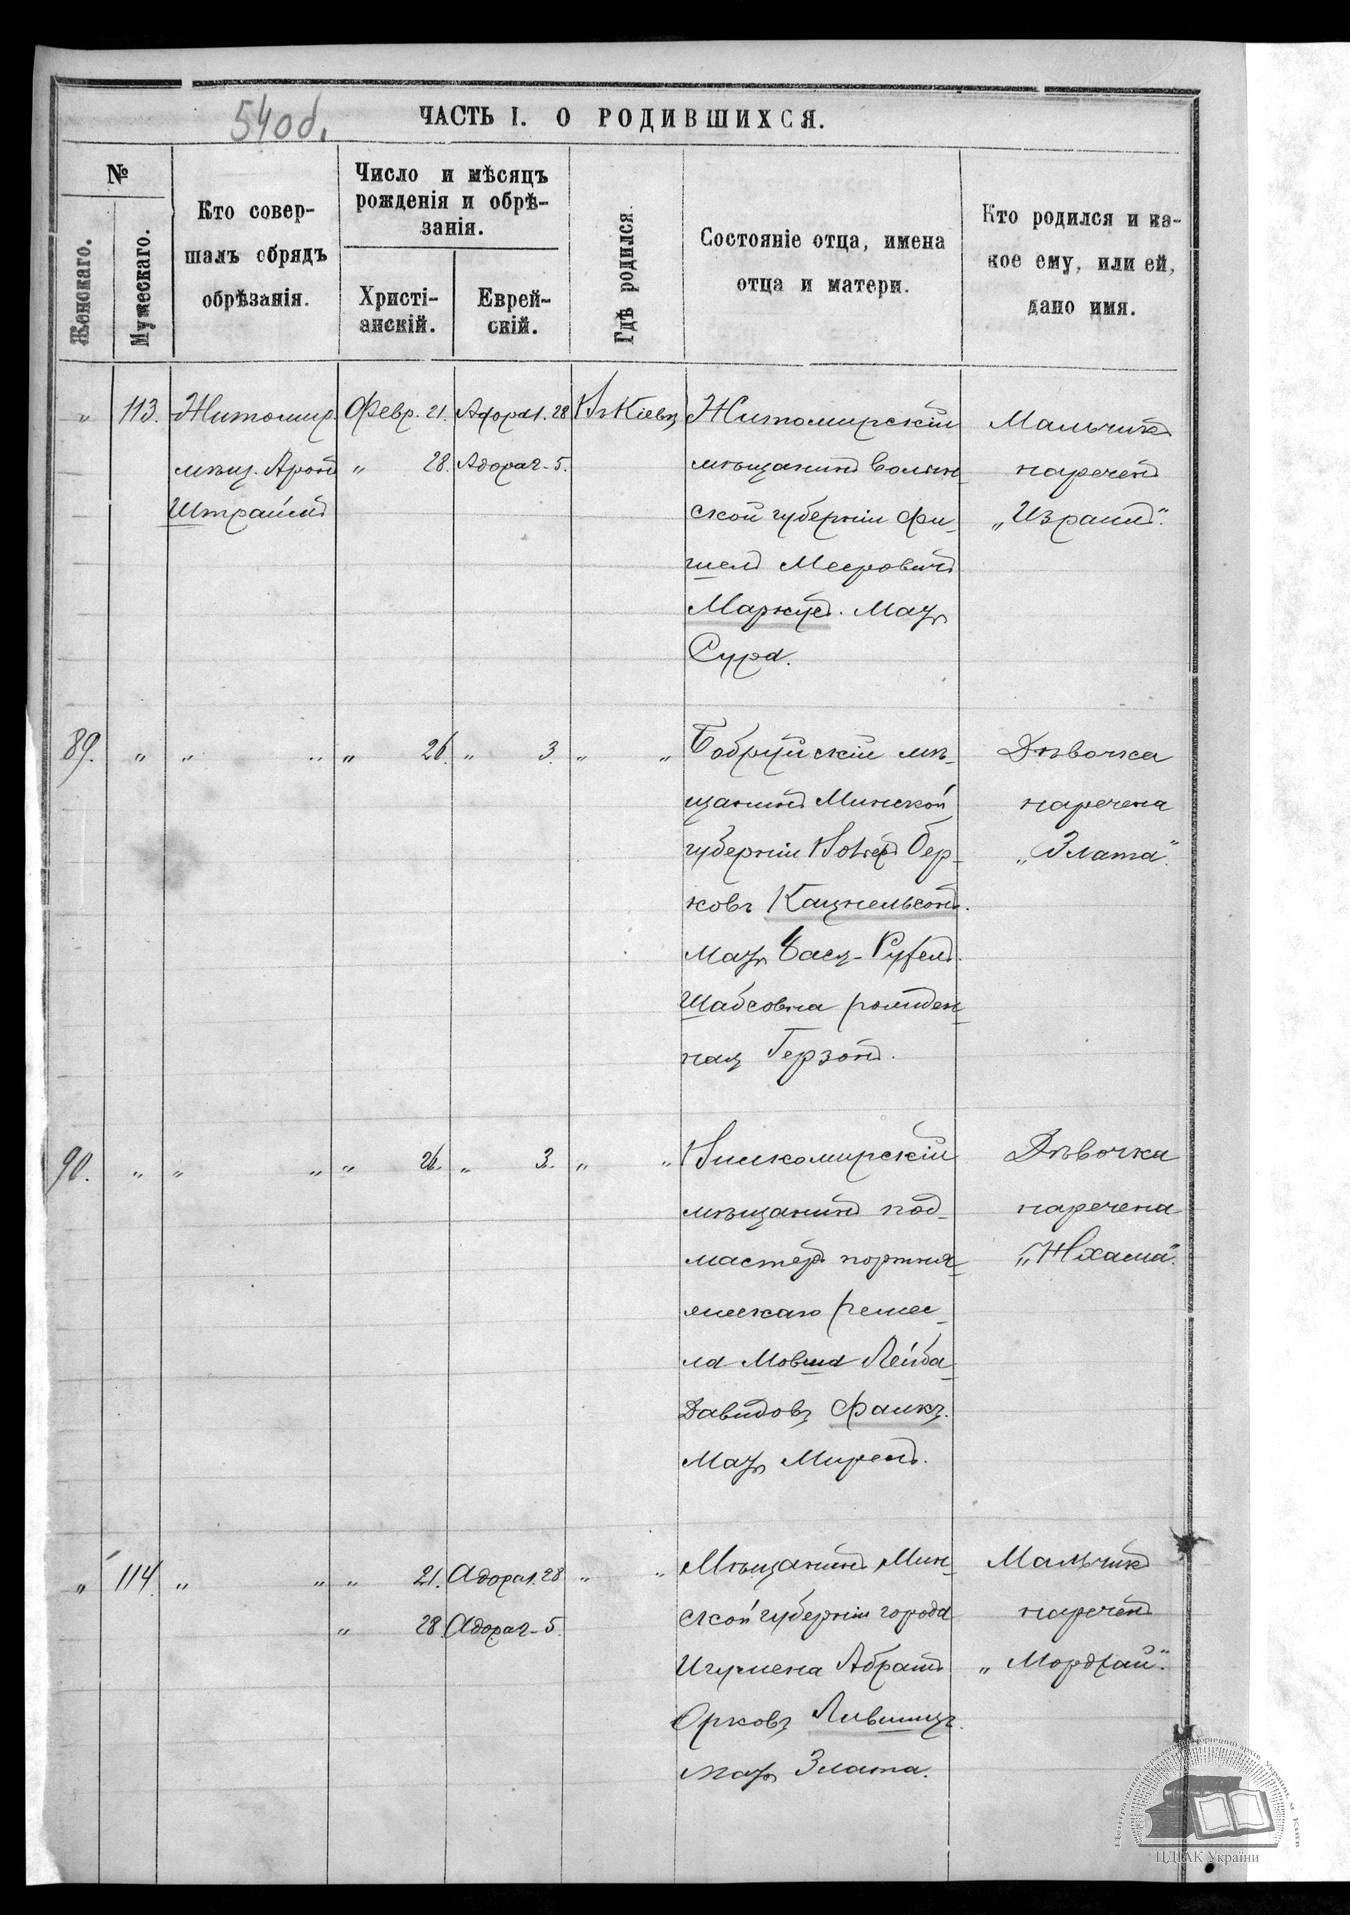 540б.
ЧАСТЬ I. О РОДИВШИХСЯ.
№
Женскаго.
Мужескаго.
Кто совер-
шалъ обрядъ
обрѣзанія.
Число и мѣсяцъ
рожденія и обрѣ-
занія.
Христі-
анскій.
Еврей-
скій.
Гдѣ родился.
Состояніе отца, имена
отца и матери.
Кто родился и ка-
кое ему, или ей,
дано имя.
„ 113.
Житомир.
мѣщ. Аронъ
Февр. 21.
„ 28.
28
5.
Въ Кіевѣ
Житомирскій
мѣщанинъ Волын-
ской губерніи Фи-
шель Мееровичъ
Маркусъ. Мать
Сура.
Мальчикъ
нареченъ
„Израиль“.
89. „ „ „ „ 26. „ 3. „ „
Бобруйскій мѣ-
щанинъ Минской
губерніи Бер-
ковъ Кацнельсонъ.
мать Бася-
Шабсовна рожден-
ная Герзонъ.
Дѣвочка
наречена
„Злата“.
90. „ „ „ „ 26. „ 3. „ „
Вилкомирскій
мѣщанинъ под-
мастеръ портня-
жескаго ремес-
ла Мовша Лейба-
Давидовъ Фалкъ.
Мать
Дѣвочка
наречена
„ 114. „ „ „ 21. 28 „ „
„ 28. 5.
Мѣщанинъ Мин-
ской губерніи города
Игумена Абрамъ
Орковъ Лившицъ.
мать Злата.
Мальчикъ
нареченъ
„Мордхай“.
ЦДІАК України